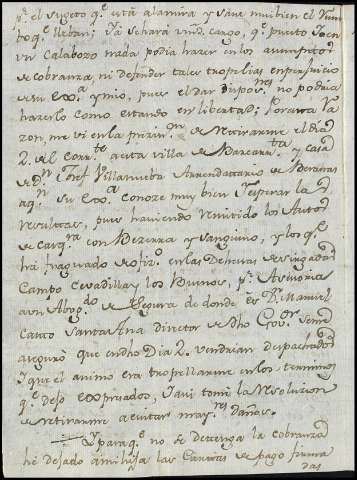 p.r el sugeto q.e està alamira y save mui bien el Rum
bo q.e lleban; Va echará vmd. cargo, q.e puesto Yo en
vn Calabozo nada podia hazer en los asumptos
de cobranza, ni defender tales tropelias en perjuicio
de su Ex.a y mio, pues el dar dispos.nes no podria
hazerlo como estando en libertad; Por cuia Ra
zon, me vi en la precis.on de Retirarme el dia
2. del corr.te a esta villa de Barcarr.ta y casa
de D.n Villanueba Arrendatario de Deesas
aq.n su Ex.a conoze muy bien Y esperar las
resultas, pues haviendo remitido los Autos
de con Bezerra y Sanguino, y los q.e
ha fraguado de ofiz.o en las Dehesas de
Campo Cevadilla y los Buenos, p.a Asesoria
a vn Abog.do de Segura de donde es D.n Manuel
Santa Ana director de dho Gov.or se me
aseguró que en dho Dia 2. vendrian despachados
Y que el animo era tropellarme en los terminos
q.e dejo expresados, Y asi tomè la Resoluzion
de retirarme a evitar may.res daños.
Y para q.e no se detenga la cobranza
hè dejado à mi hija las Cartas de pago firma
das